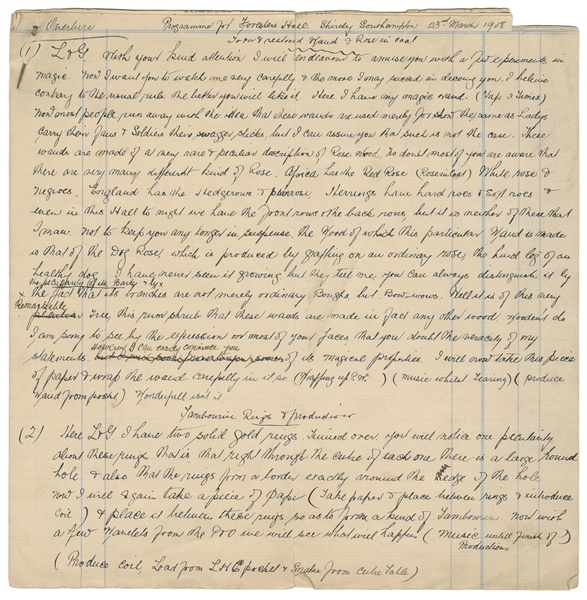 Overture Programme for Foresters Hall. Shirley Southampton 23rd March 1908
Torn & restored Wand & Rose in coat
(1) L&G. With your kind attention I will endeavour to amuse you with a few experiments in
magic. Now I want you to watch me very carefully & the more I may succeed in deceiving you. I believe
contrary to the usual rule the better you will like it. Here I have my magic wand. (Taps 3 Times)
Now most people run away with the idea that these wands are used merely for show the same as Ladys
carry their fans & Soldiers their swagger sticks but I can assure you that such is not the case. These
wands are made of a very rare & peculiar description of Rose wood. No doubt most of you are aware that
there are very many different kind of Rose. Africa has the Red Rose White rose &
negroes. England has the Hedgerows & primrose. Herrings have hard roes & soft roes &
even in this Hall to night we have the front rows & the back rows, but it is neither of these that
I mean. Not to keep you any longer in suspense, the Wood of which this particular Wand is made
is that of the Dog Rose, which is produced by grafting on an ordinary rose the hind leg of an
healthy dog. I have never seen it growing but they tell me, you can always distinguish it by
the peculiarity of its Bark & by
the fact that its branches are not merely ordinary Boughs but Bow wows. Well it is of this very
Remarkable
Tree this rum shrub that these wands are made in fact any other wood wooden't do
I am sorry to see by the expression on most of your faces that you doubt the veracity of my
I can easily convince you
statements of its magical properties. I will now take this piece
of paper & wrap the wand carefully in it so (Wrapping up &c.) (Music whilst Tearing) (produce
Wand from pocket) Wonderfull isn't it
Tambourine Rings & production
(2) Here L&G. I have two solid gold rings. Turned over you will notice one peculiarity
about these rings that is that right through the centre of each one there is a large round
hole & also that the rings form a border exactly around the edge of the hole.
Now I will again take a piece of paper (Take paper & place between rings & introduce
coil) & place it between these rings, so as to form a kind of Tambourine. Now with
a few from the we will see what will happen (Music untill finish of
Productions)
(Produce coil, Load from L H pocket & Snake from centre Table)